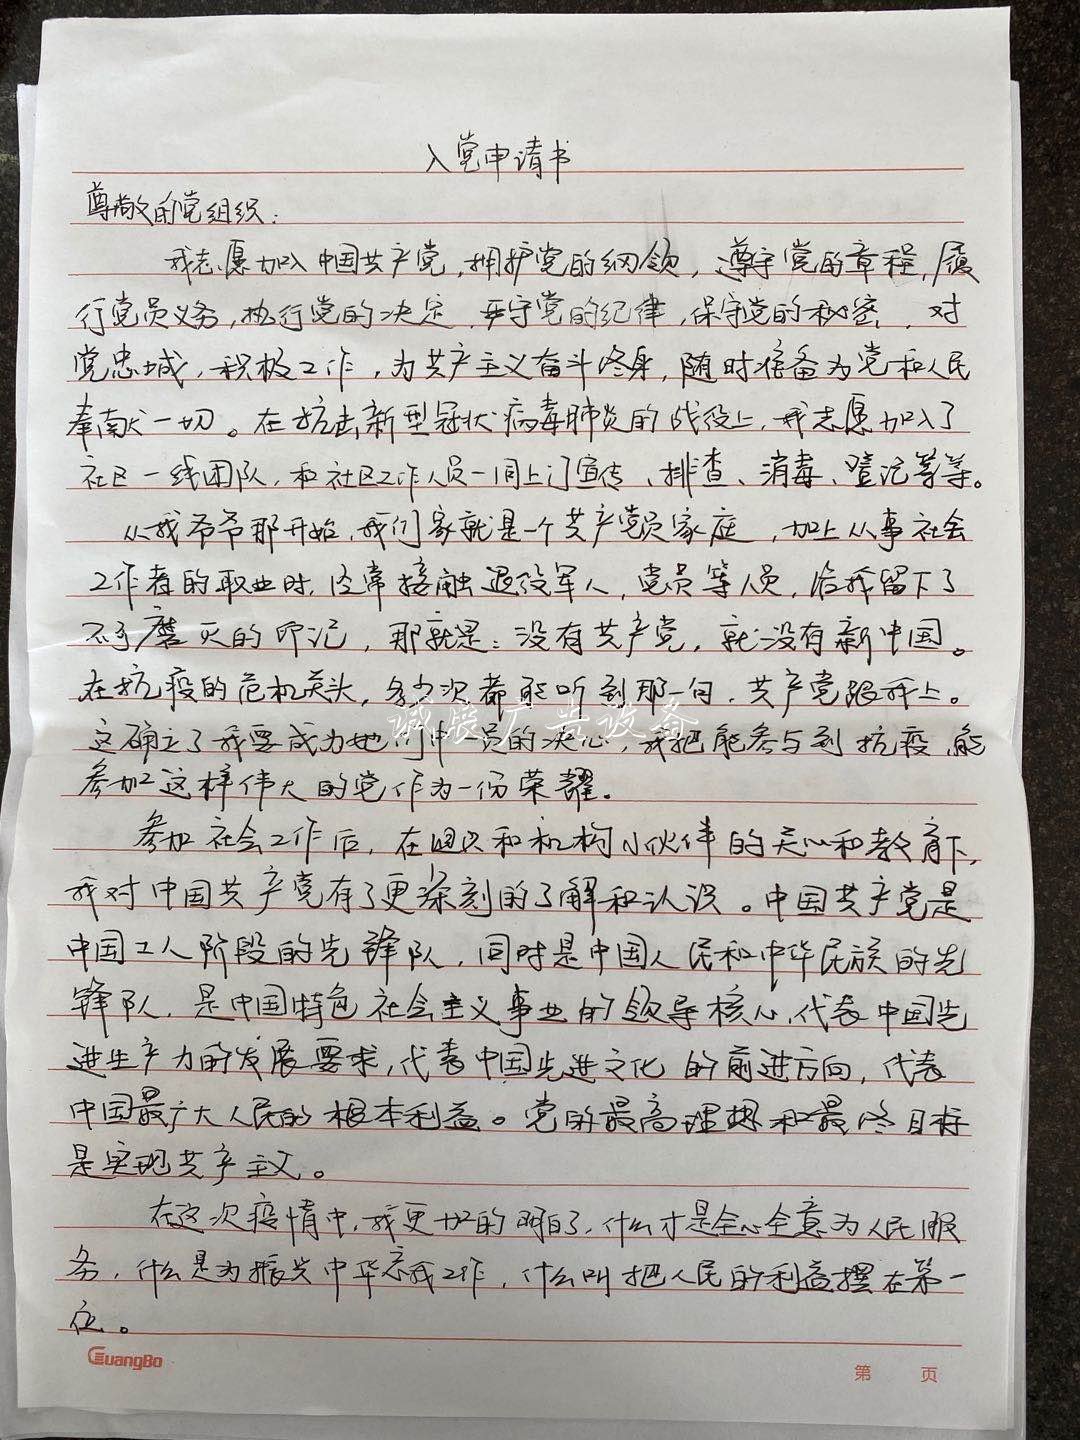 入党申请书
尊敬的党组织：
我志愿加入中国共产党，拥护党的纲领，遵守党的章程，履
行党员义务，执行党的决定，严守党的纪律，保守党的秘密，对
党忠城，积极工作，为共产主义奋斗终身，随时准备为党和人民
奉献一切。在抗击新型冠状病毒肺炎的战役上，我志愿加入了
社区一线团队，和社区工作人员一同上门宣传、排查、消毒、登记等等。
从我爷爷那开始，我们家就是一个共产党员家庭，加上从事社会
工作者的职业时，经常接触退役军人，党员等人员，给我留下了
不可磨灭的印记，那就是：没有共产党，就没有新中国。
在抗疫的危机关头，多少次都能听到那一句，共产党跟我上。
这确立了我要成为他们中一员的决心，我把能参与到抗疫，能
参加这样伟大的党作为一份荣耀。
参加社会工作后，在和机构小伙伴的关心和教育下，
我对中国共产党有了更深刻的了解和认识。中国共产党是
中国工人阶段的先锋队，同时是中国人民和中华民族的先
锋队，是中国特色社会主义事业的领导核心，代表中国先
进生产力的发展要求，代表中国先进文化的前进方向，代表
中国最广大人民的根本利益。党的最高理想和最终目标
是实现共产主义。
在这次疫情中，我更加的明白了，什么才是全心全意为人民服
务，什么是为振兴中华工作，什么叫把人民的利益摆在第一
位。
诚展广告设备
GuangBo
第 页